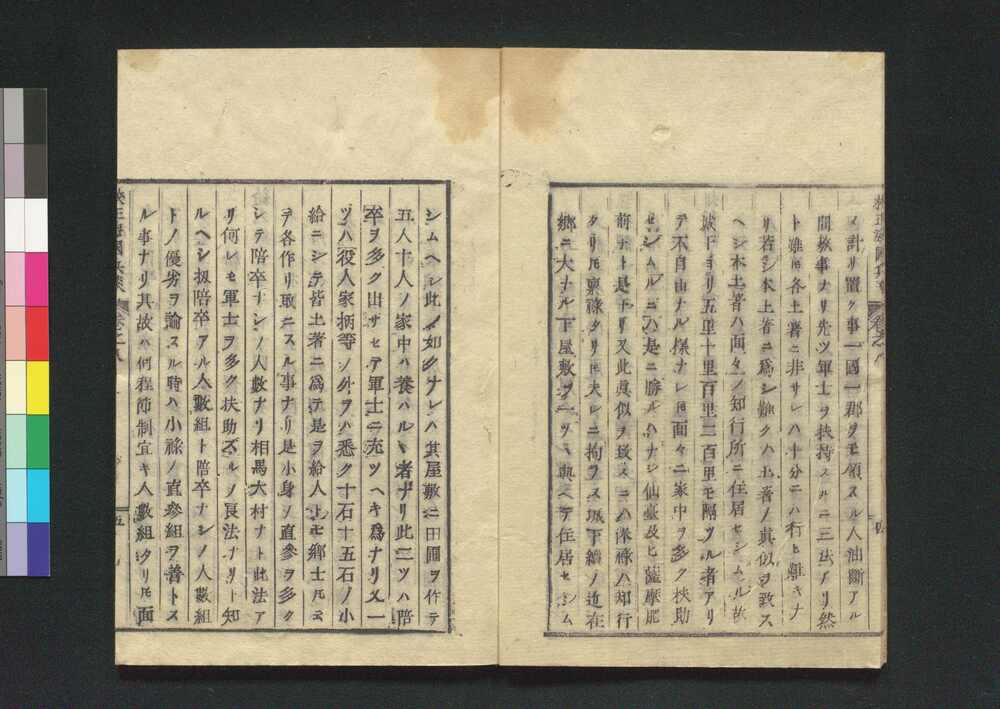 ノ計リ置ク事一國一郡ヲモ領スル人油斷アル
間敷事ナリ先ツ軍士ヲ扶持スルニ三法アリ然
ト雖𪜈各土著ニ非サレハ十分ニハ行ヒ難キナ
リ若シ本土著ニ爲シ難クハ土著ノ眞似ヲ致ス
ヘシ本土著ハ面々ノ知行所ニ住居セシムル故
城下ヨリ五里十里百里二百里モ隔ツル者アリ
テ不自由ナル樣ナレ𪜈面々ニ家中ヲ多ク扶助
セシムルニハ是ニ勝ルハナシ仙臺及ヒ薩摩肥
前
ト是ナリ又此眞似ヲ致スニハ
祿ハ知行
タリ𪜈廩祿タリ𪜈夫レニ拘ラス城下續ノ近在
鄕ニ大ナル下屋敷ヲ一ツヽ與ヘテ住居セシム
シムヘシ此ノ如クナレハ其屋敷ニ田圃ヲ作テ
五人十人ノ家中ハ養ハルヽ者ナリ此二ツハ陪
卒ヲ多ク出サセテ軍士ニ充ツヘキ爲ナリ又一
ツハ役人家柄等ノ外ヲハ悉ク十石十五石ノ小
給ニシテ皆土著ニ爲テ是ヲ給人
𪜈鄕士𪜈云
テ各作リ取ニスル事ナリ是小身ノ直參ヲ多ク
シテ陪卒ナシノ人數ナリ相馬大村ナト此法ア
リ何レモ軍士ヲ多ク扶助スルノ良法ナリト知
ルヘシ扨陪卒アル人數組ト陪卒ナシノ人數組
トノ優劣ヲ論スル時ハ小祿ノ直參組ヲ善トス
ル事ナリ其故ハ何程節制宜キ人數組タリ𪜈面
五